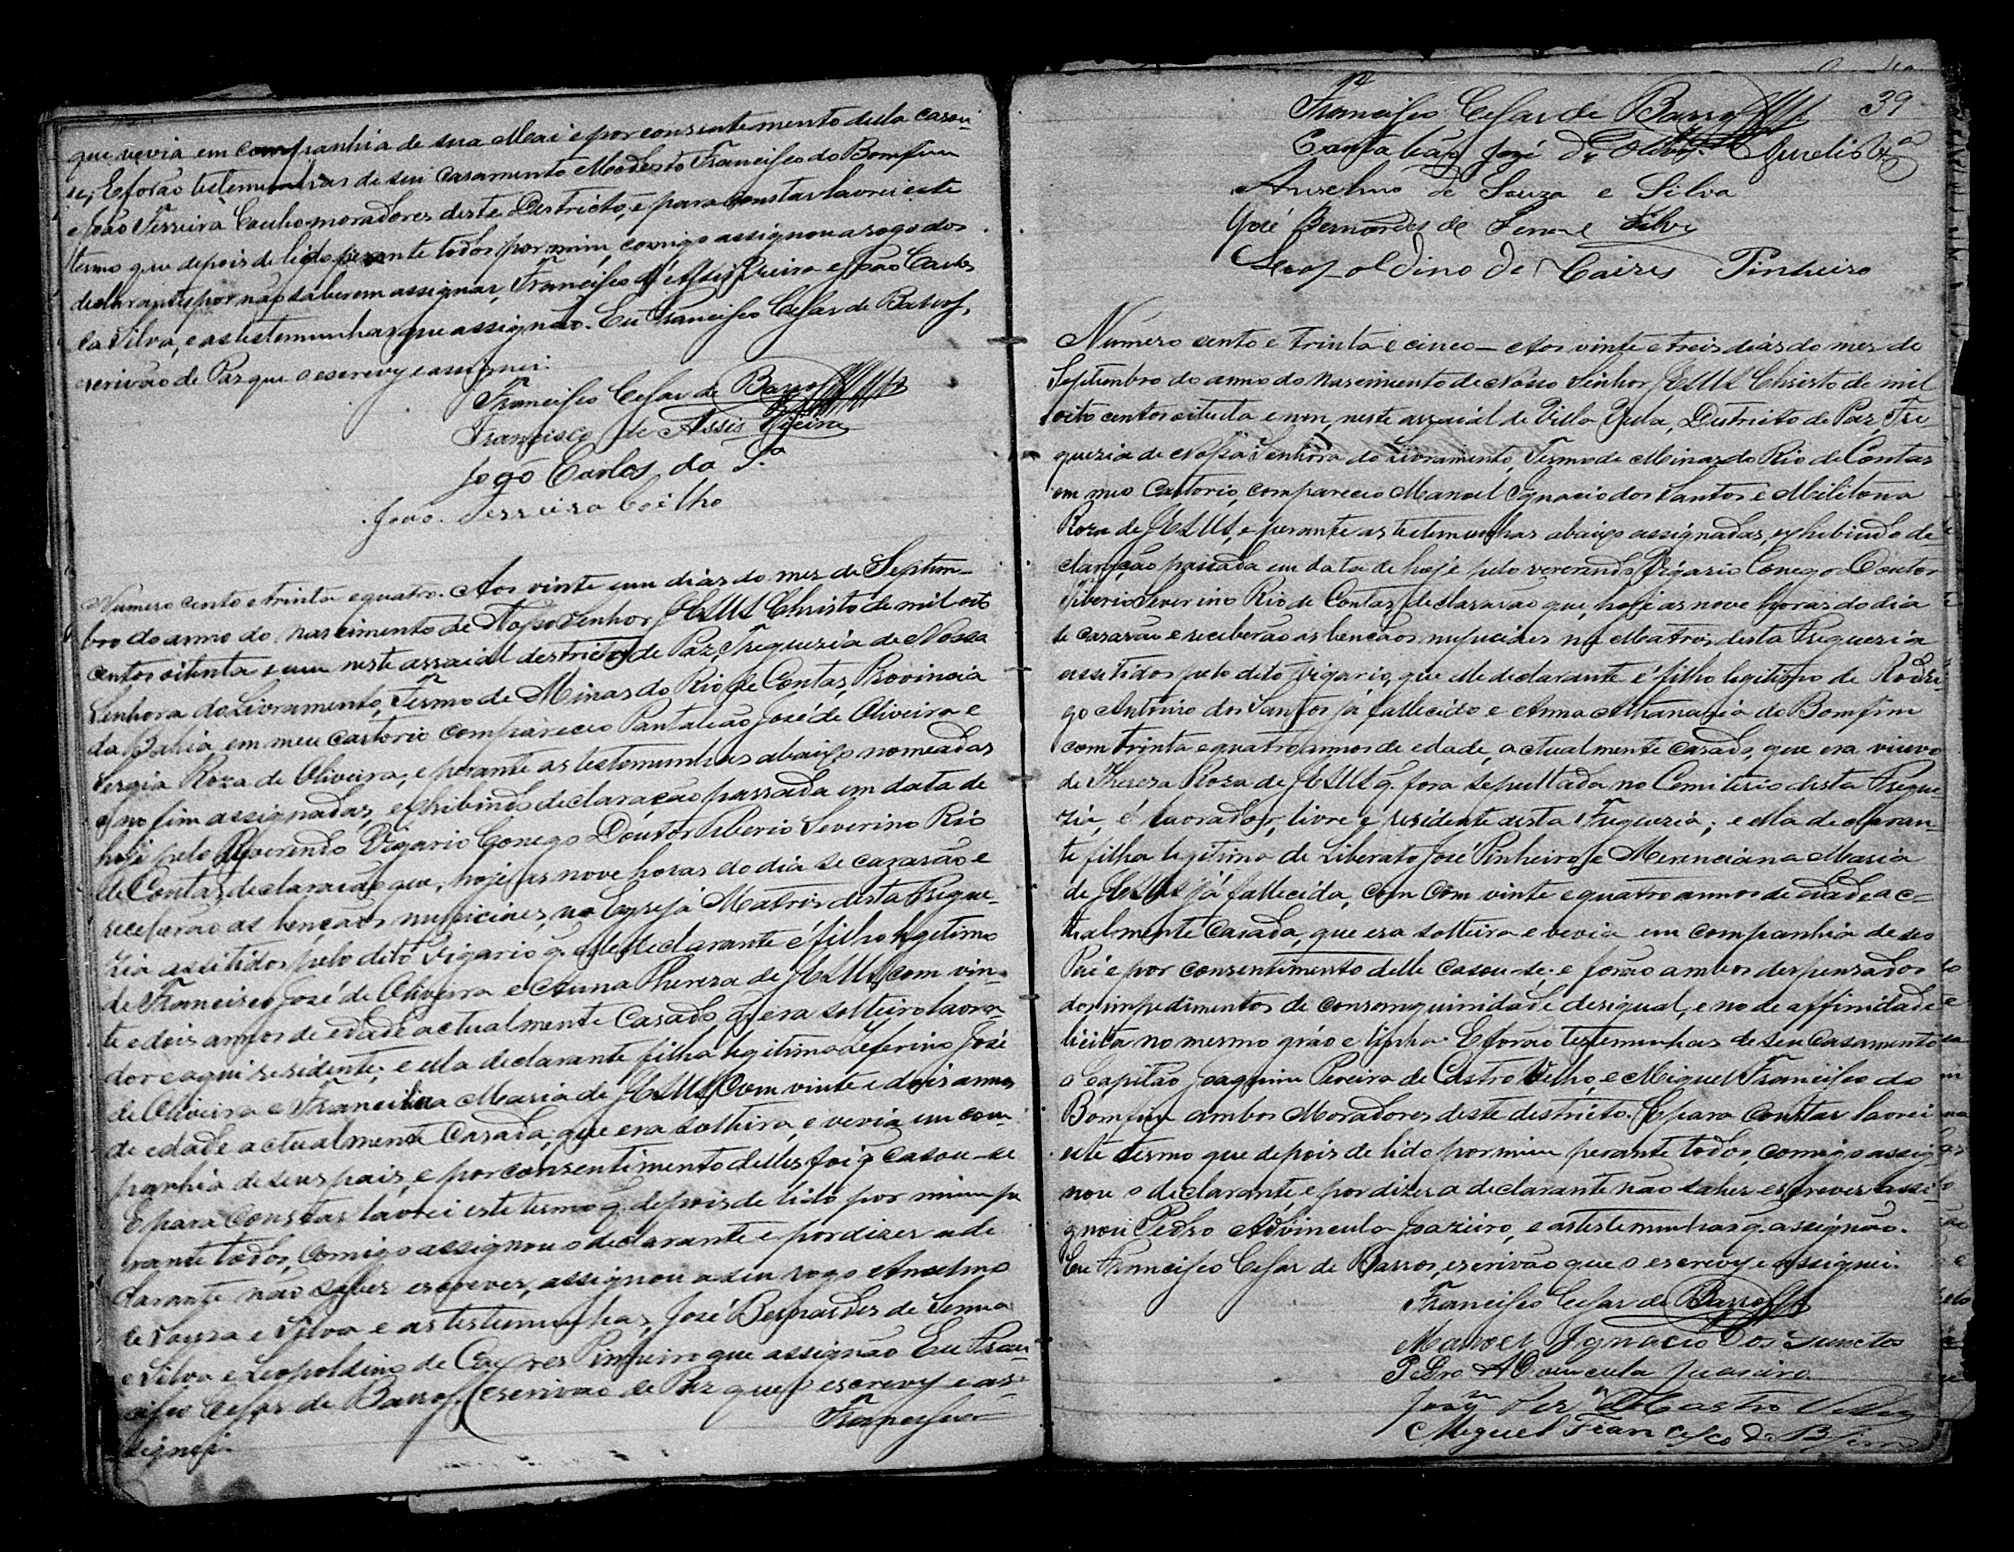 que vevia em companhia de sua Mai e por consentemento della casou-
se; E forão testemunhas de seu casamento Modesto Francisco do Bomfim
e João Ferreira Coelho moradores deste Districto, e para constar lavrei este
termo que depois de lido perante todos por mim, comigo assignou a rogo dos
declarantes por não saberem assignar, Francisco d'Assis Vieira e João Carlos
da Silva, e as testemunhas que assignão. Eu Francisco Cesar de Barros,
escrivão de Paz que o escrevy e assignei.
Francisco Cesar de Barros
Francisco de Assis Vieira
João Carlos da S.ª
João Ferreira Coilho
Numero cento e trinta e quatro. Aos vinte um dias do mez de Septem-
bro do anno do nascimento de Nosso Senhor JESUS Christo de mil oito
centos oitenta e um neste arraial destricto de Paz, Freguezia de Nossa
Senhora do Livramento, Termo de Minas do Rio de Contas, Provincia
da Bahia, em meu cartorio compareceo Pantaleão José de Oliveira e
Sergia Roza de Oliveira, e perante as testemunhas abaixo nomeadas
e no fim assignadas, exhibindo declaração passada em data de
hoje pelo Reverendo Vigario Conego Doutor Tiberio Severino Rio
de Contas, declararão que, hoje as nove horas do dia se cazarão e
receberão as bençãos nupiciaes, na Egreja Matris desta Fregue-
zia assitidos pelo dito Vigario q. elle declarante é filho legitimo
de Francisco José de Oliveira e Anna Thereza de JESUS, com vin-
te e dois annos de edade actualmente casado, q. era solteiro lavra-
dor e aqui residente; e ella declarante filha legitima Zeferino José
de Oliveira e Francisca Maria de JESUS, com vinte e dois annos
de edade actualmente casada, que era solteira, e vevia em com-
panhia de seus pais, e por consentimento delles foi q. casou-se
E para constar lavrei este termo q. depois de lido por mim pe
rante todos, comigo assignou o declarante e por dizer a de
clarante não saber escrever, assignou a seu rogo Anselmo
de Souza e Silva e as testemunhas, José Bernardes de Senna
e Silva e Leopoldino de Cayres Pinheiro que assignão Eu Fran-
cisco Cesar de Barros, escrivão de Paz que o escrevy e as-
signei.
Francisco
39
Francisco Cesar de Barros
Pantalião José de Oliv.ª
Anselmo de Souza e Silva
José Bernardes de Sena e Silva
Leopoldino de Caires Pinheiro
Numero cento e trinta e cinco — Aos vinte e treis dias do mez de
Septembro do anno do nascimento de Nosso Senhor JESUS Christo de mil
oito centos oitenta e um, neste arraial de Villa Velha, Districto de Paz, Fre-
guezia de Nossa Senhora do Livramento, Termo de Minas do Rio de Contas
em meo Cartorio, compareceo Manoel Ignacio dos Santos e Melitona
Roza de JESUS, e perante as testemunhas abaixo assignadas, exhibindo de
claração passada em data de hoje pelo reverendo Vigario Conego Doutor
Tiberio Severino Rio de Contas, declararão que, hoje as nove horas do dia
se casarão e receberão as bençãos nupiciaes na Matris desta Freguezia
assitidos pelo dito vigario, que elle declarante é filho legitimo de Rodri-
go Antonio dos Santos já fallecido e Anna Athanasia do Bomfim
com trinta e quatro annos de edade, actualmente casado, que era viuvo
de Thereza Roza de JESUS q. fora sepultada no Cemiterio desta Fregue-
zia, é lavrador, livre e residente desta Freguezia; e ella declaran-
te filha legitima de Liberato José Pinheiro e Merenciana Maria
de JESUS já fallecida, com com vinte e quatro annos de edade ac-
tualmente casada, que era solteira e vevia em companhia de seo
Pai e por consentimento delle casou-se; e forão ambos despensados
dos impedimentos de consanguinidade desigual, e no de affinidade
licita no mesmo gráo e linha. E forão testemunhas de seu casamento
o Capitão Joaquim Pereira de Castro Velho, e Miguel Francisco do
Bomfim ambos Moradores deste districto. E para constar lavrei
este termo que depois de lido por mim perante todos, comigo assig-
nou o declarante, e por dizer a declarante não saber escrever assi-
gnou Pedro Advincula Joazeiro, e as testemunhas q. assignão.
Eu Francisco Cesar de Barros, escrivão que o escrevy e assignei.
Francisco Cesar de Barros
Manoel Ignacio dos Sanctos
Pedro ADvincula Juaseiro
Joaq.m Per.ª de Castro Velho
Miguel Francisco do Bomfim